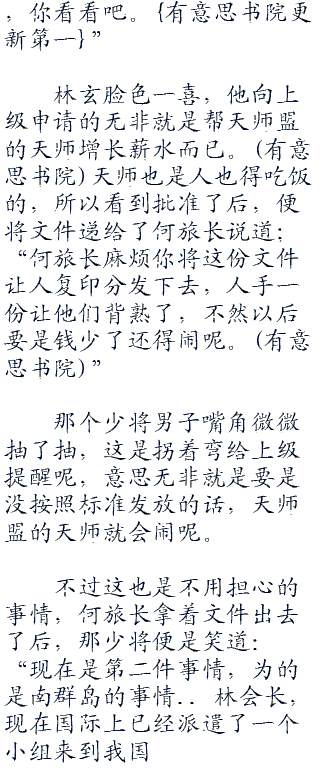 ，你看看吧。{有意思书院更
新第一}”
林玄脸色一喜，他向上
级申请的无非就是帮天师盟
的天师增长薪水而已。(有意
思书院)天师也是人也得吃饭
的，所以看到批准了后，便
将文件递给了何旅长说道：
“何旅长麻烦你将这份文件
让人复印分发下去，人手一
份让他们背熟了，不然以后
要是钱少了还得闹呢。(有意
思书院)”
那个少将男子嘴角微微
抽了抽，这是拐着弯给上级
提醒呢，意思无非就是要是
没按照标准发放的话，天师
盟的天师就会闹呢。
不过这也是不用担心的
事情，何旅长拿着文件出去
了后，那少将便是笑道：
“现在是第二件事情，为的
是南群岛的事情．．林会长，
现在国际上已经派遣了一个
小组来到我国